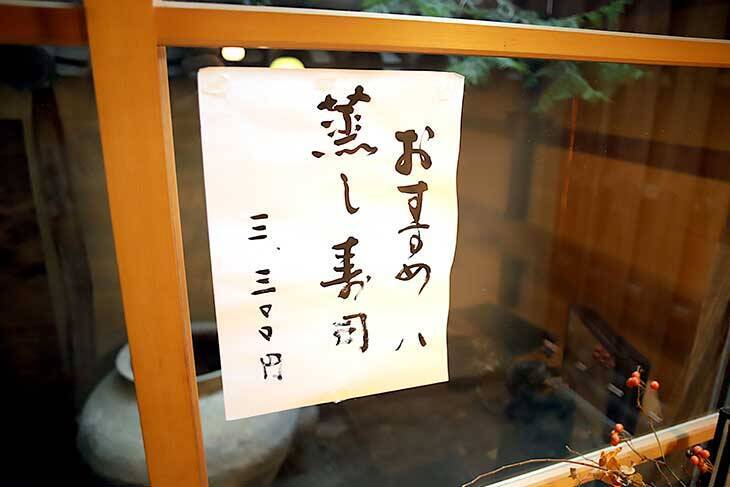 おすすめ 八
蒸し寿司
三、三〇〇円